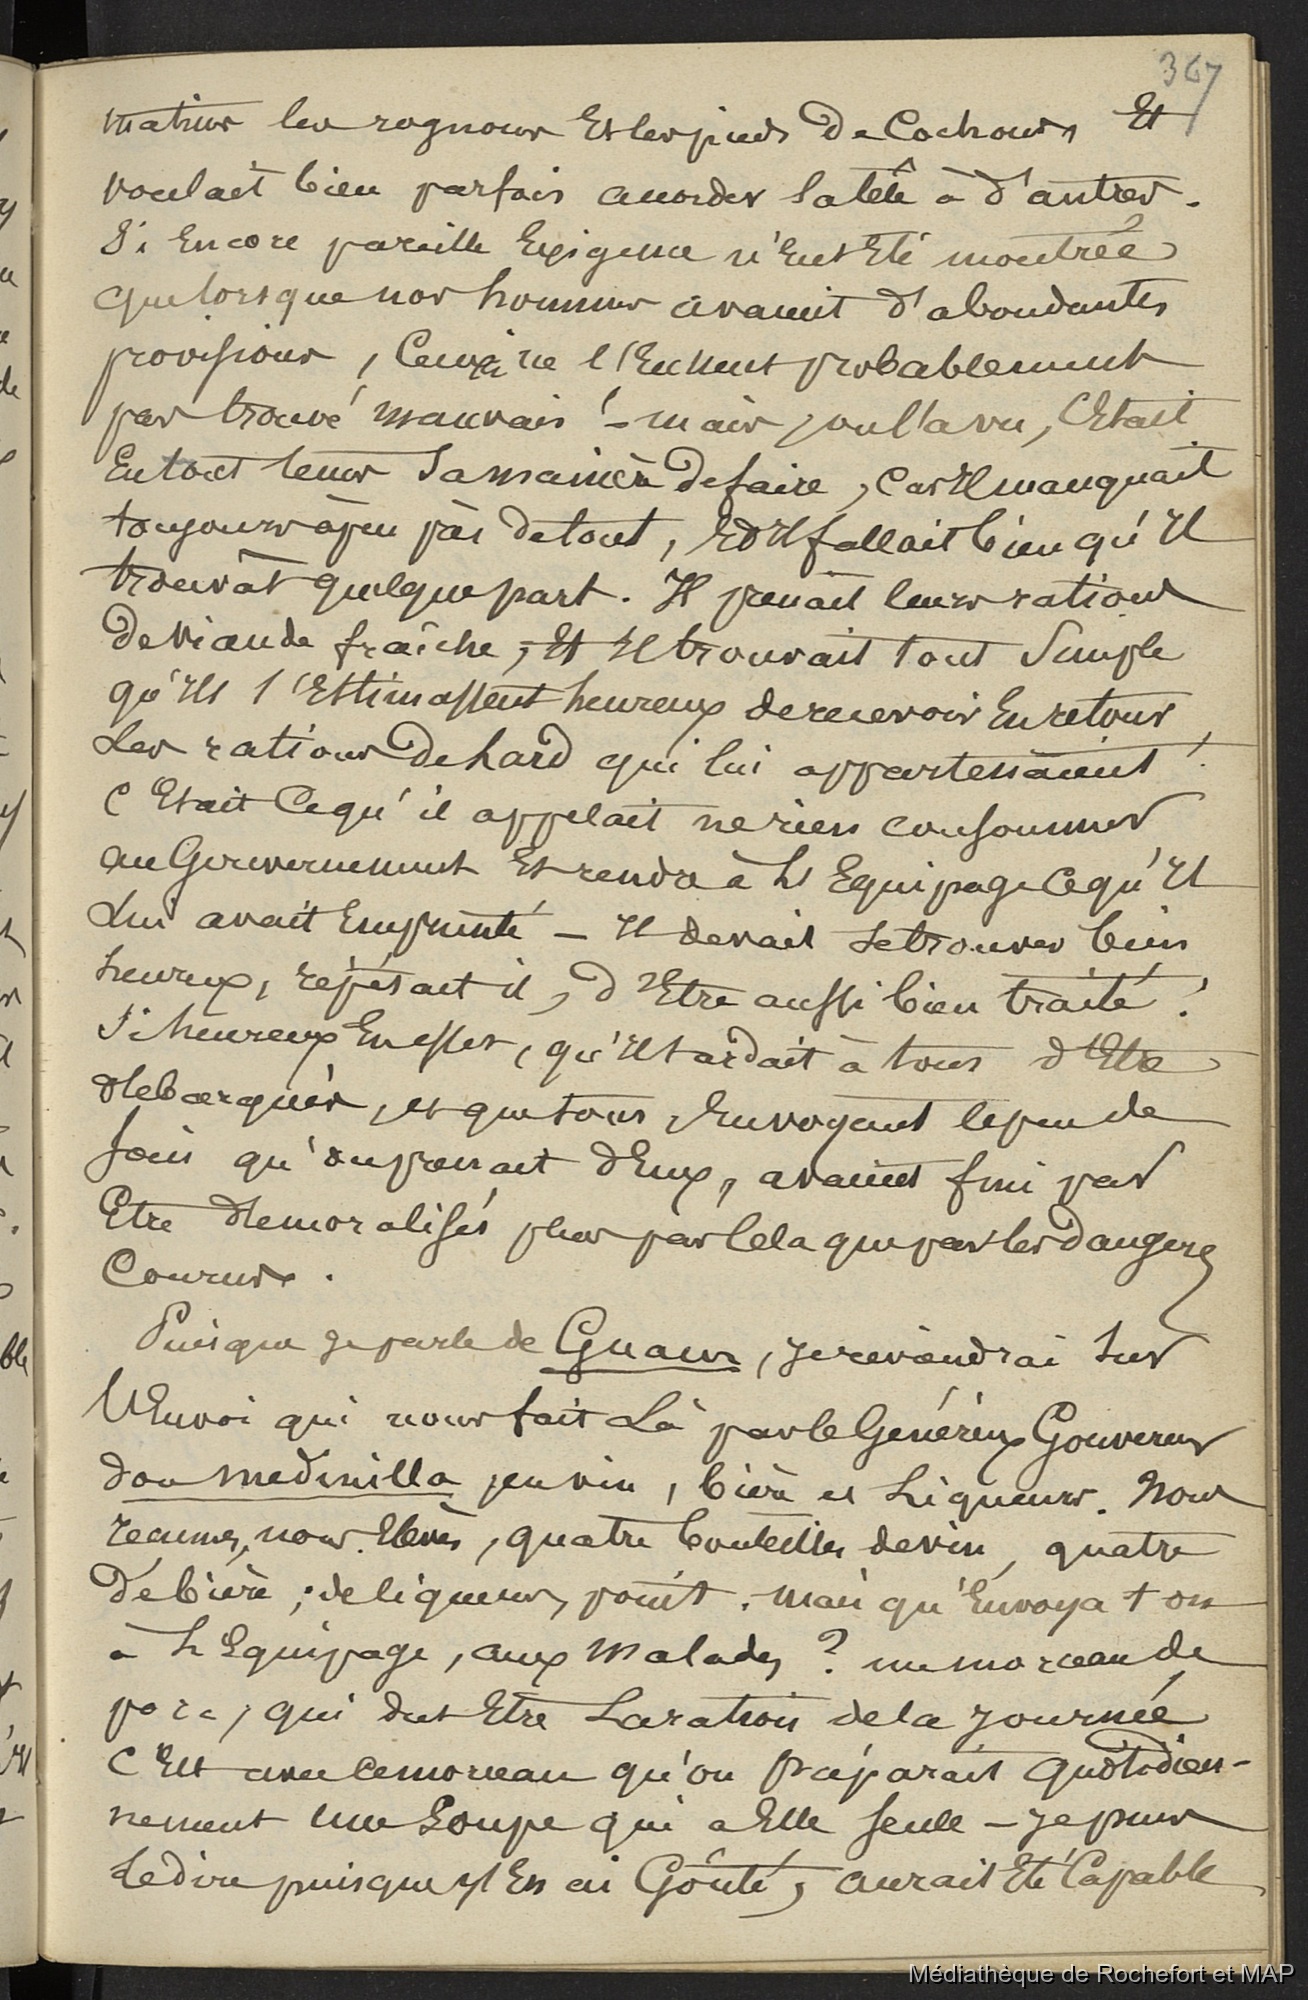 367
matins les rognons Et les pieds De Cochons Et
voulait bien parfois accorder la tête à d'autres.
Si Encore pareille Exigence n'Eut Eté montrée
que lorsque nos hommes avaient d'abondantes
provisions, Ceux ci ne l'Eussent probablement
pas trouvé mauvais ! – mais, on l'a vu, C'Etait
En tout tems Sa manière De faire, Car Il manquait
toujours à peu près De tout, Et Il fallait bien qu'Il
trouvât quelque part. Il prenait leurs rations
De viande fraîche, Et Il trouvait tout Simple
qu'Ils s'Estimassent heureux de recevoir En retour
Les rations De Lard qui lui appartenaient !
C'Etait Ce qu'il appelait ne rien consommer
au Gouvernement Et rendre à L'Equipage Ce qu'Il
Lui avait Emprunté – Il devait Se trouver bien
heureux, répétait il, D'Etre aussi bien traité !
Si heureux En effet, qu'Il tardait à tous d'Etre
débarqués, et que tous, En voyant le peu de
soin qu'on prenait D'Eux, avaient fini par
Etre démoralisés plus par Cela que par les Dangers
Courus.
Puisque je parle de Guam, je reviendrai Sur
l'Envoi qui nous fait Là par le Généreux Gouverneur
don Medinilla, en vin, bière et Liqueurs. Nous
reçumes, nous Elèves, quatre bouteilles de vin, quatre
De bière ; de liqueurs, point. Mais qu'Envoya t on
à L'Equipage, aux Malades ? un morceau de
porc, qui dut Etre La ration de la journée
C'Est avec ce morceau qu'on préparait quotidien-
nement une Soupe qui a Elle Seule – je puis
Le dire puisque j'En ai Goûté, aurait Eté Capable
Médiathèque de Rochefort et MAP